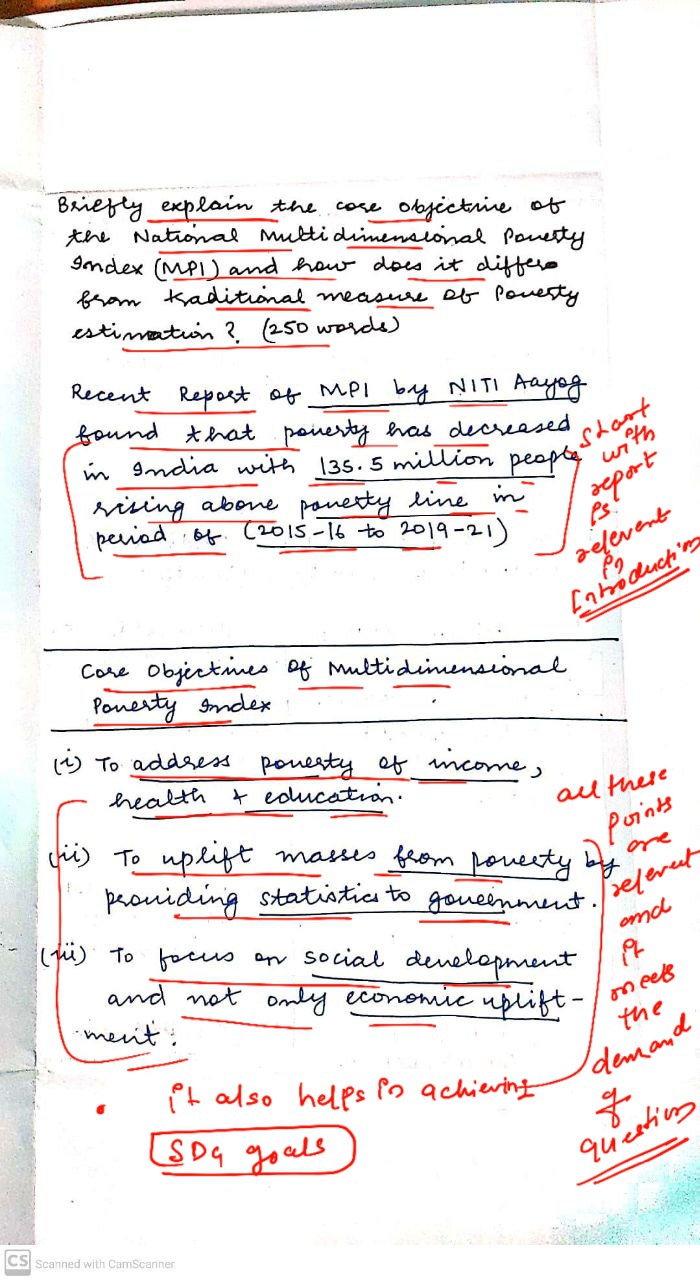 Briefly explain the core objective of
the National Multidimensional Poverty
Index (MPI) and how does it differs
from traditional measure of Poverty
estimation? (250 words)
Recent Report of MPI by NITI Aayog
found that poverty has decreased
in India with 135.5 million people
rising above poverty line in
period of (2015-16 to 2019-21)
Start
with
report
is
relevent
in
Introduction
Core Objectives of Multidimensional
Poverty Index
(i) To address poverty of income,
health & education.
(ii) To uplift masses from poverty by
providing statistics to government.
(iii) To focus on social development
and not only economic uplift-
ment.
all these
points
are
relevent
and
it
meets
the
demand
of
question
• it also helps in achieving
SDG goals
CS Scanned with CamScanner